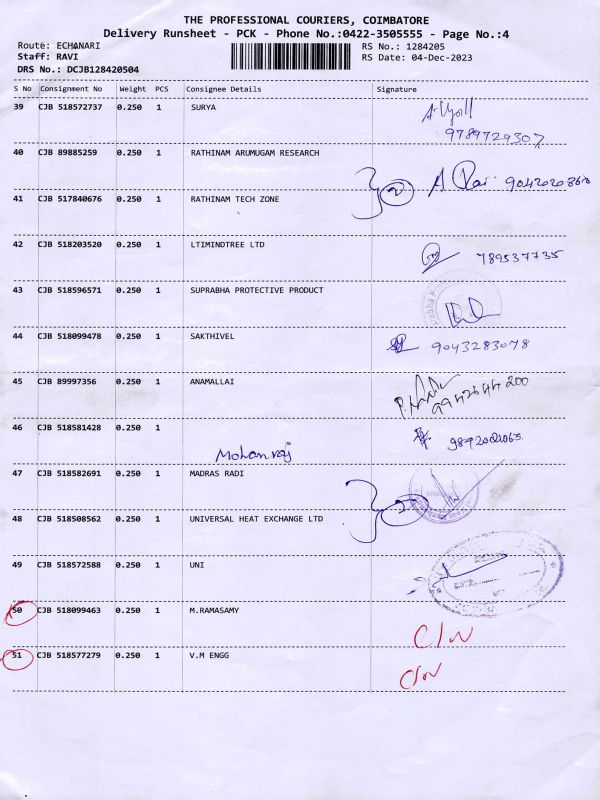 THE PROFESSIONAL COURIERS, COIMBATORE
Delivery Runsheet - PCK - Phone No.:0422-3505555 - Page No.:4
Route: ECHANARI
RS No.: 1284205
Staff: RAVI
RS Date: 04-Dec-2023
DRS No.: DCJB128420504
S No Consignment No Weight PCS Consignee Details Signature
39 CJB 518572737 0.250 1 SURYA
9789729307
40 CJB 89885259 0.250 1 RATHINAM ARUMUGAM RESEARCH
2
41 CJB 517840676 0.250 1 RATHINAM TECH ZONE
42 CJB 518203520 0.250 1 LTIMINDTREE LTD
789537735
43 CJB 518596571 0.250 1 SUPRABHA PROTECTIVE PRODUCT
44 CJB 518099478 0.250 1 SAKTHIVEL
9043283078
45 CJB 89997356 0.250 1 ANAMALLAI
46 CJB 518581428 0.250 1
Mohanraj
47 CJB 518582691 0.250 1 MADRAS RADI
2
48 CJB 518508562 0.250 1 UNIVERSAL HEAT EXCHANGE LTD
49 CJB 518572588 0.250 1 UNI
50 CJB 518099463 0.250 1 M.RAMASAMY
51 CJB 518577279 0.250 1 V.M ENGG